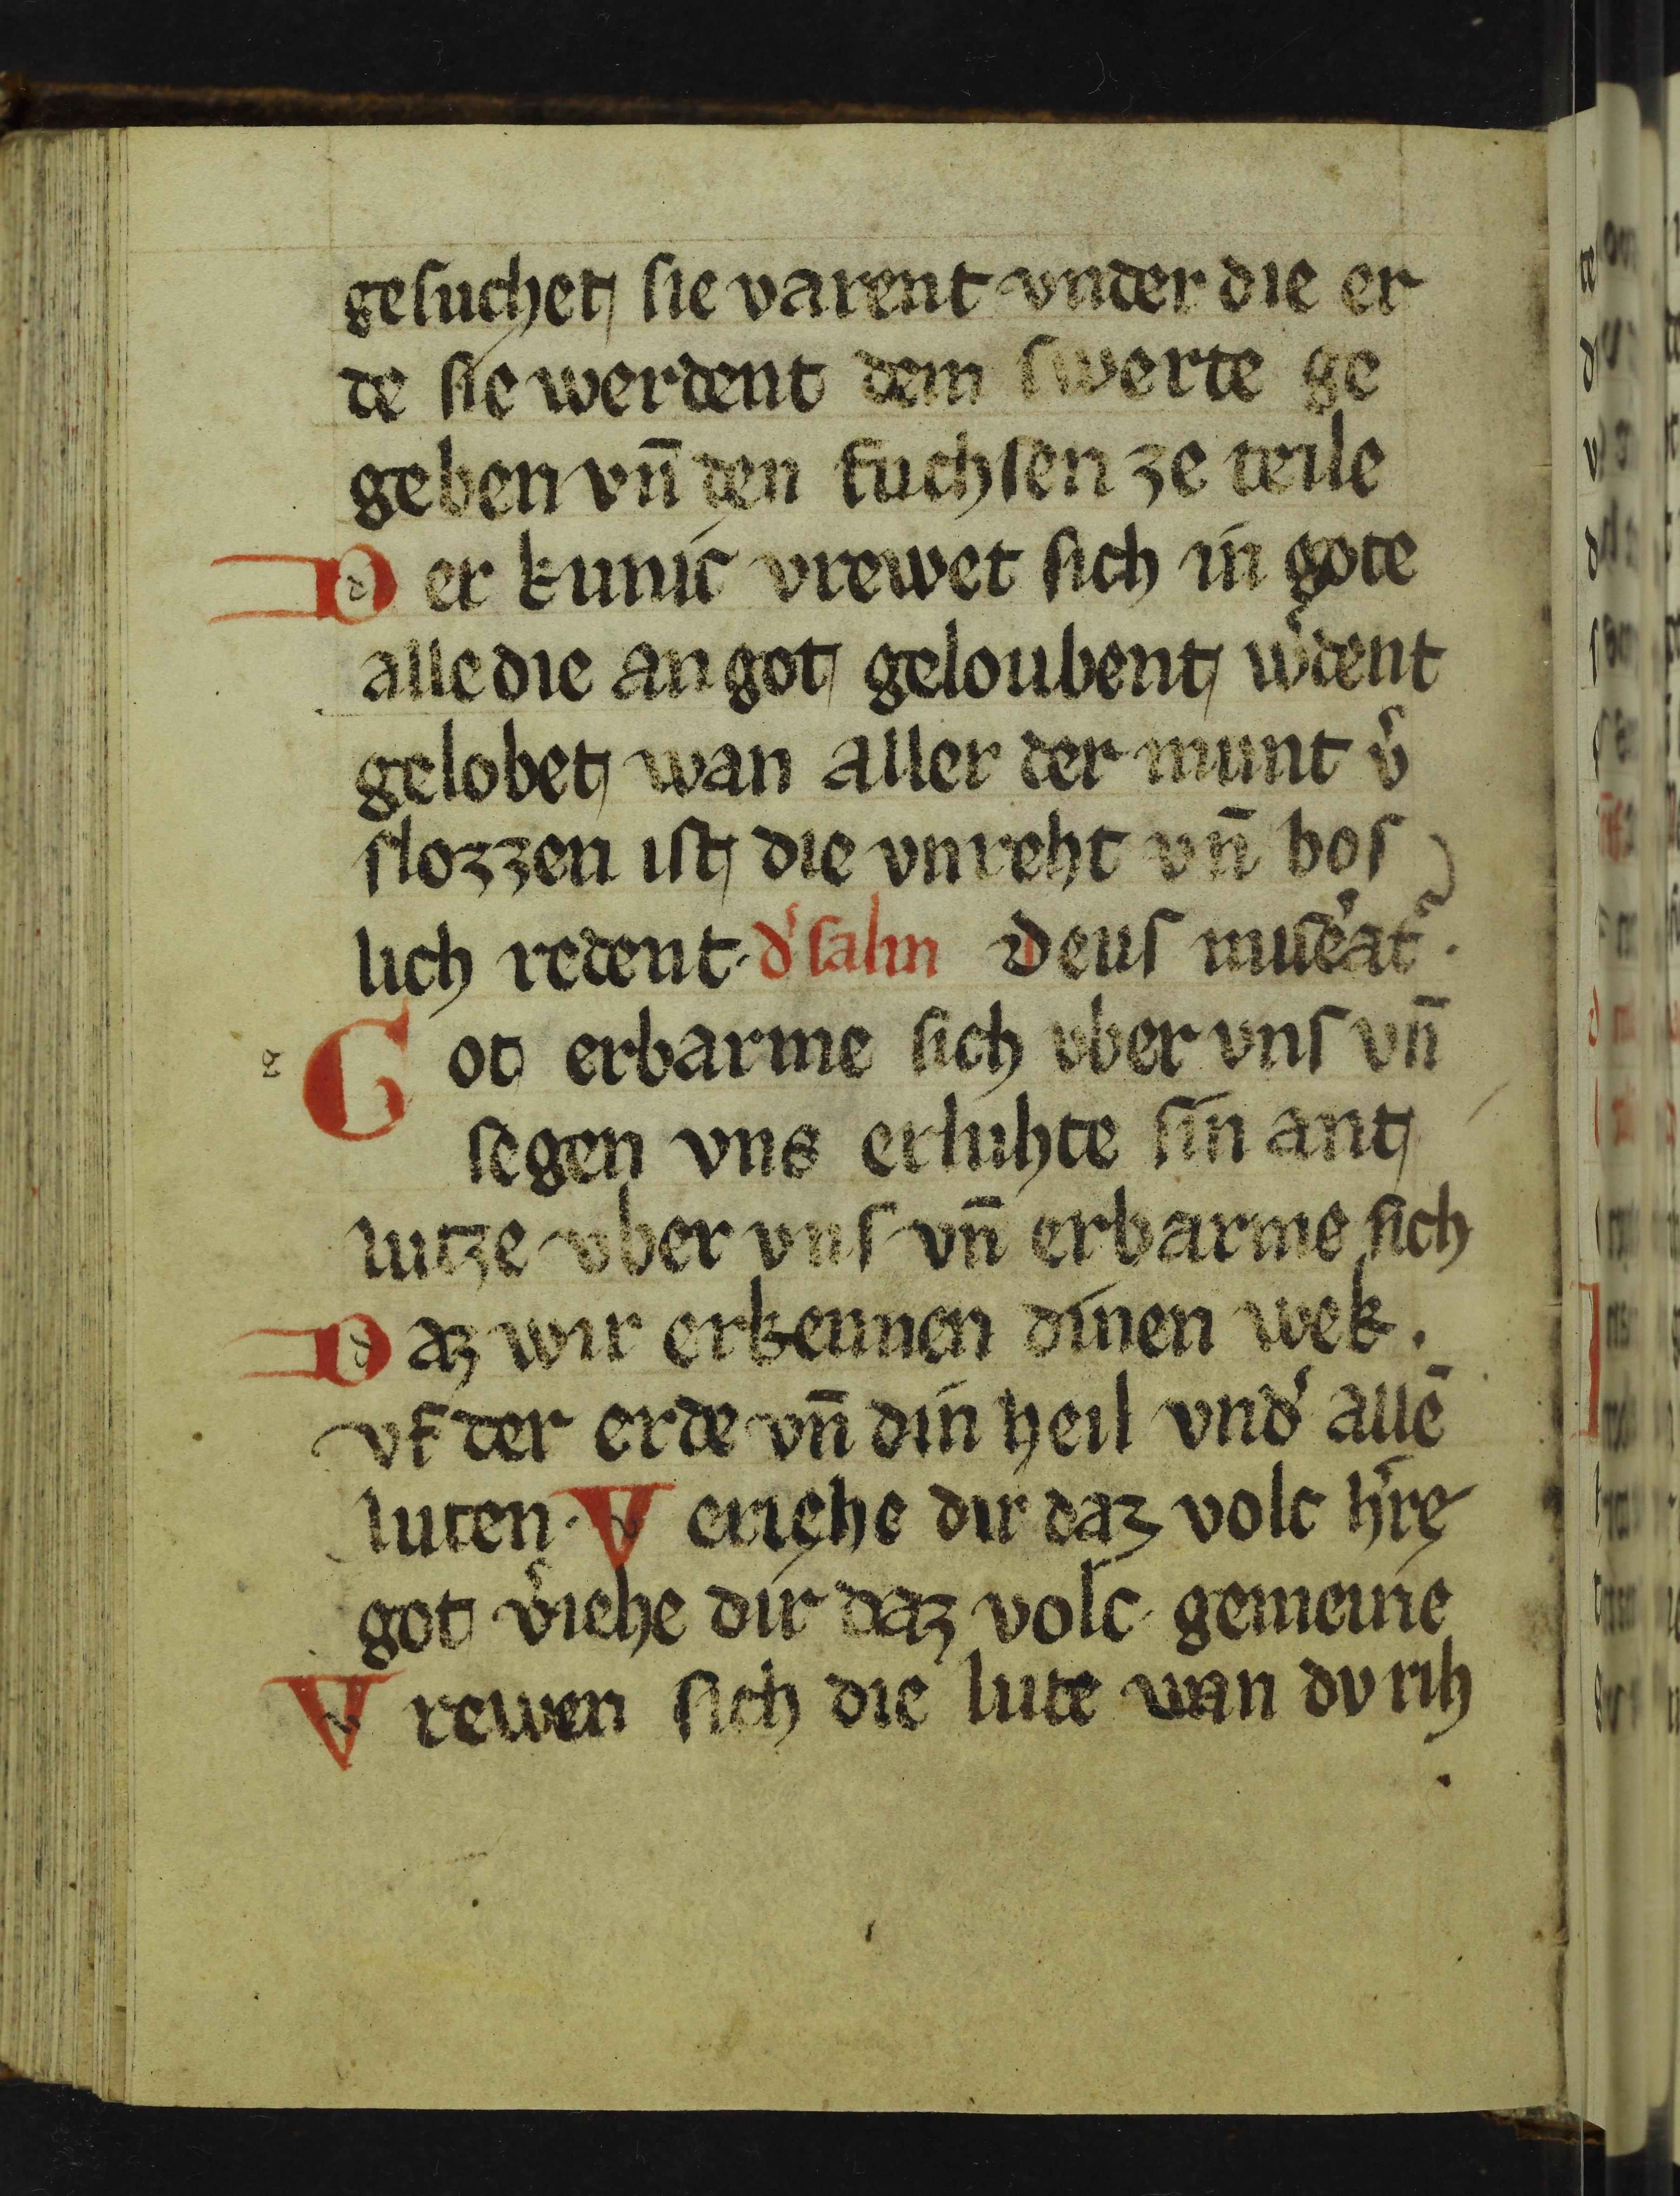 gesuchet sie varent vnder die er
de sie werdent dem swerte ge
geben vn̄ den fuchsen ze teile
Der kunic vrewet sich in gote
alle die an got geloubent w͛dent
gelobet wan aller der munt v͛
slozzen ist die vnreht vn̄ bos
lich redent. d͛ salm Deus mise͛at᷑.
g Got erbarme sich vber vns vn̄
segen vns erluhte sin ant
lutze vber vns vn̄ erbarme sich
Daz wir erkennen dinen wek.
vf der erde vn̄ din heil vnd͛ allē
luten. Veriehe dir daz volc h͛re
got v͛iehe dir daz volc gemeine
Vrewen sich die lute wan dvrih